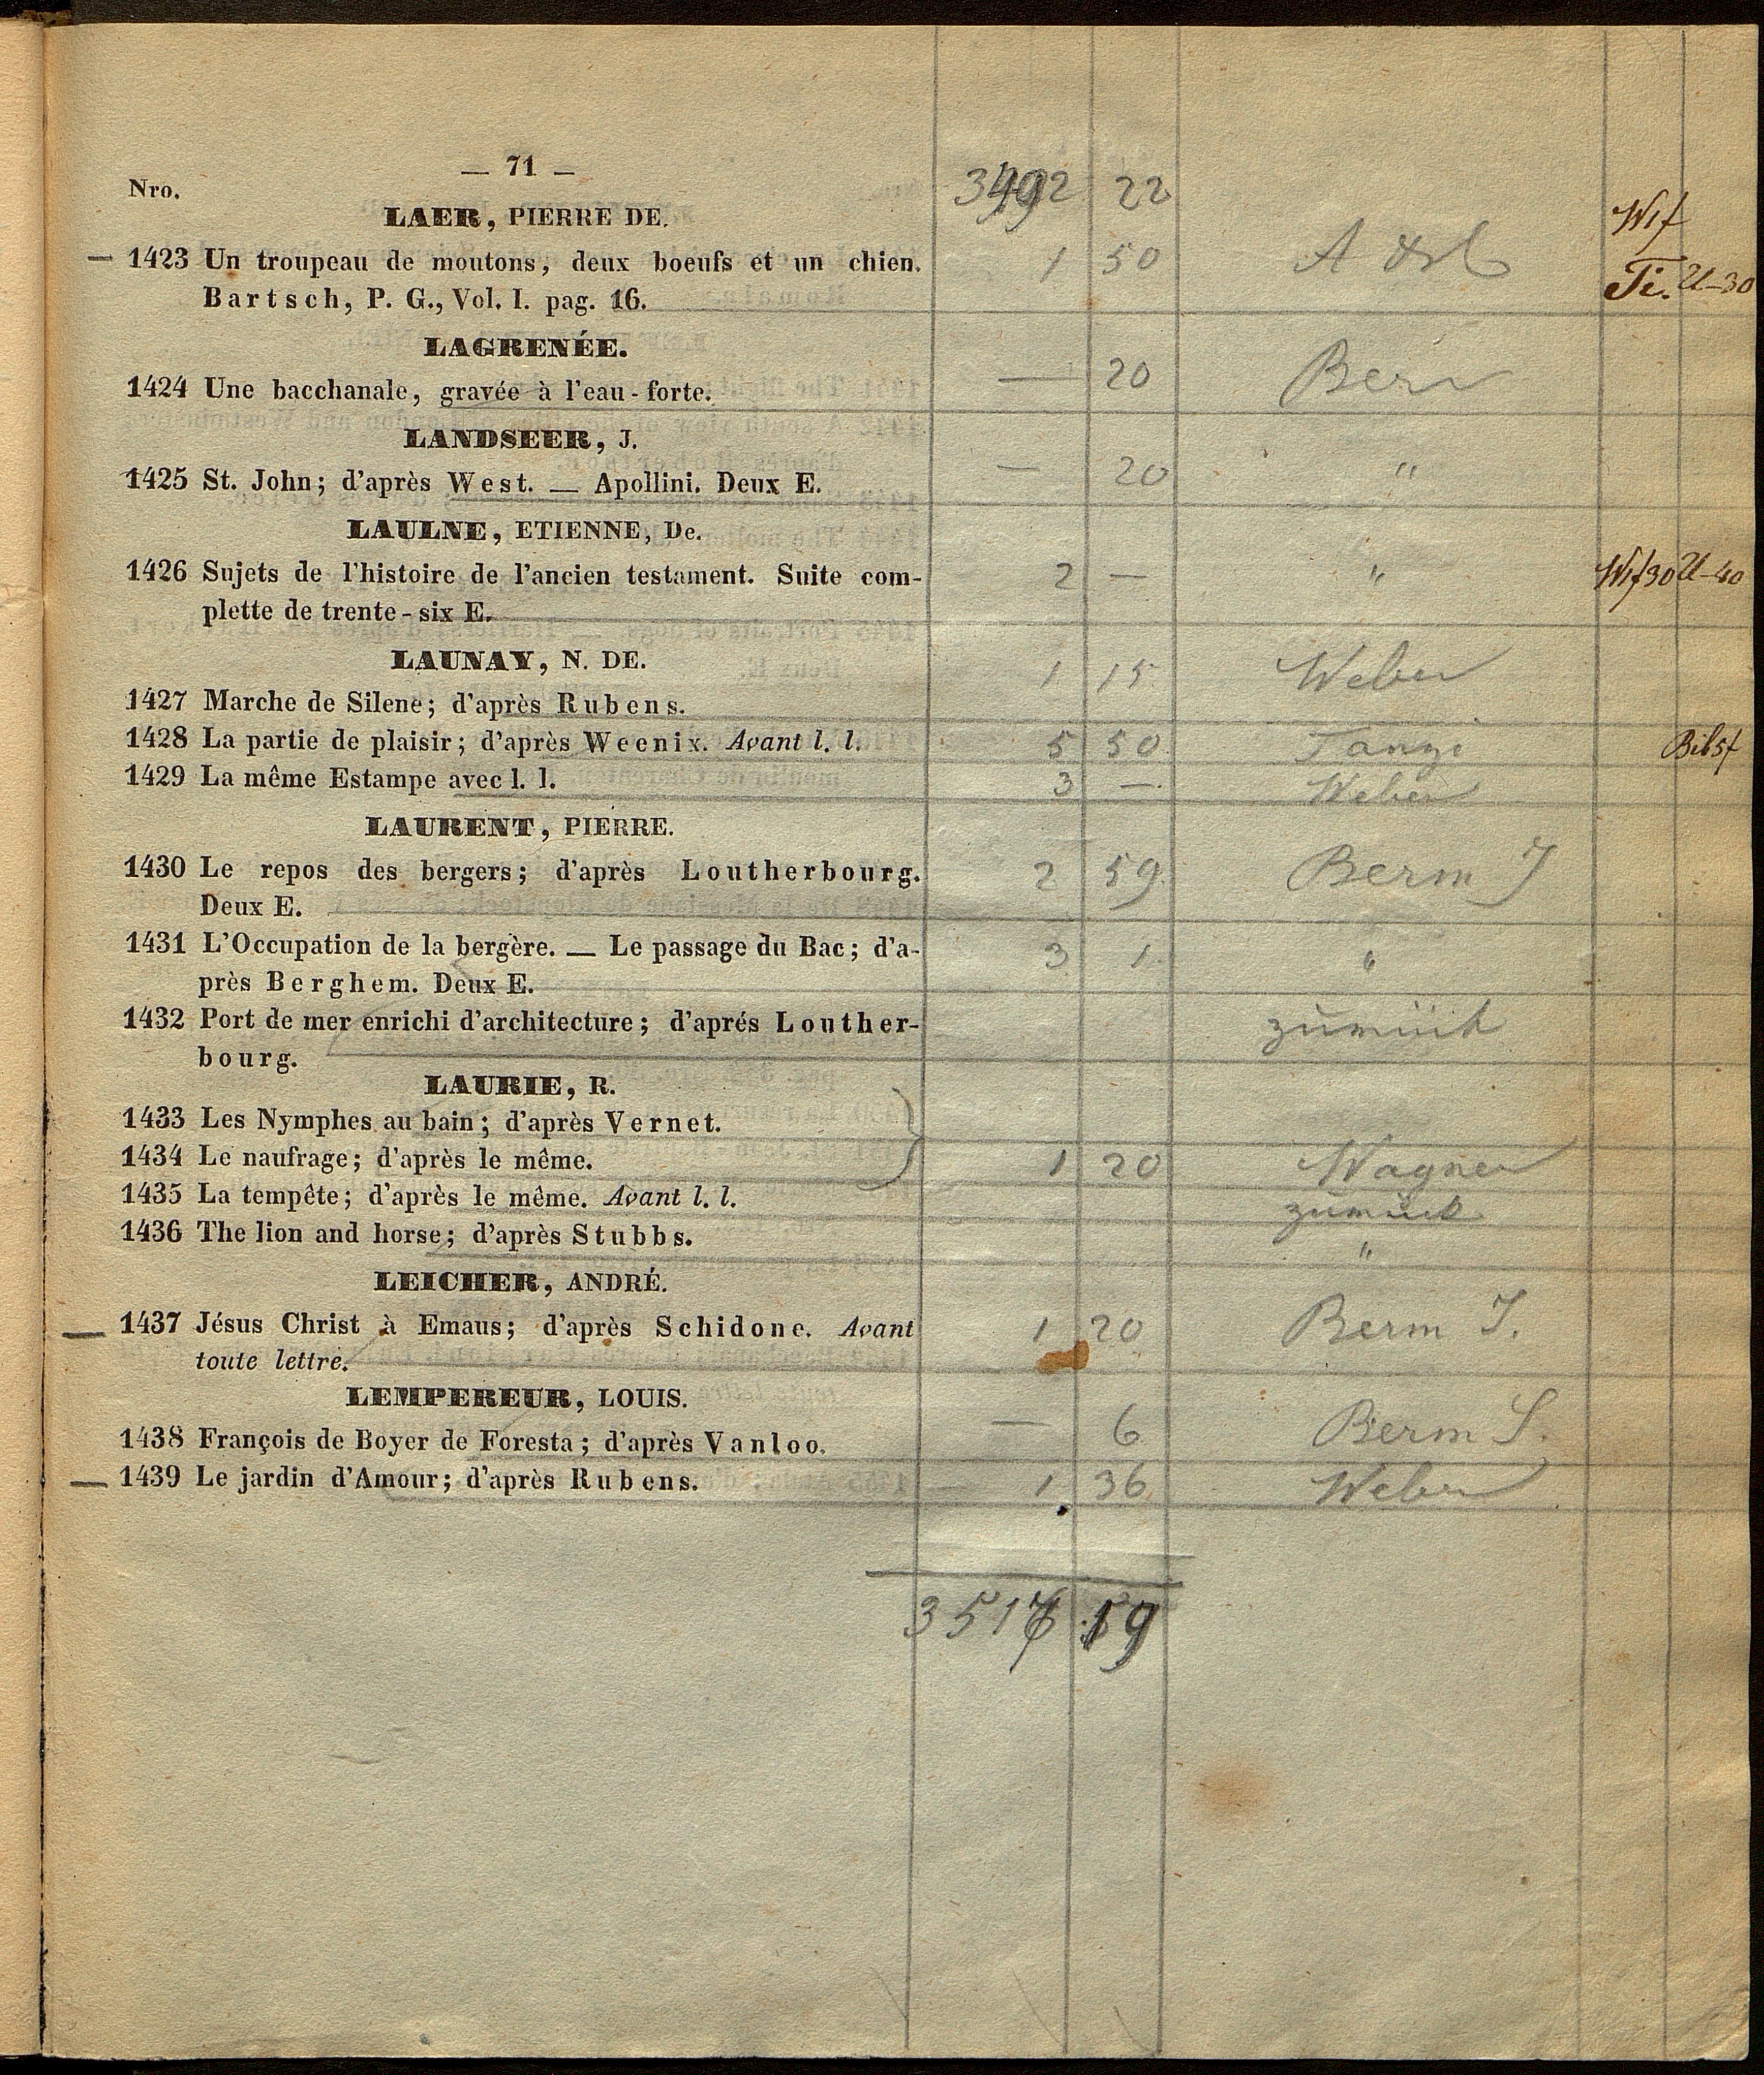 — 71 —
Nro. 3492 22
LAER, PIERRE DE.
— 1423 Un troupeau de moutons, deux boeufs et un chien. 1 50
Bartsch, P. G., Vol. I. pag. 16. U—30
LAGRENÉE.
1424 Une bacchanale, gravée à l'eau-forte. — 20
LANDSEER, J.
1425 St. John; d'après West. — Apollini. Deux E. — 20 "
LAULNE, ETIENNE, De.
1426 Sujets de l'histoire de l'ancien testament. Suite com- 2 — " U—40
plette de trente-six E.
LAUNAY, N. DE.
1427 Marche de Silene; d'après Rubens. 1 15 Weber
1428 La partie de plaisir; d'après Weenix. Avant l. l. 5 50
1429 La même Estampe avec l. l. 3 — Weber
LAURENT, PIERRE.
1430 Le repos des bergers; d'après Loutherbourg. 2 59 Berm J
Deux E.
1431 L'Occupation de la bergère. — Le passage du Bac; d'a- 3 1 "
près Berghem. Deux E.
1432 Port de mer enrichi d'architecture; d'aprés Louther- zurück
bourg.
LAURIE, R.
1433 Les Nymphes au bain; d'après Vernet.
1434 Le naufrage; d'après le même. 1 20 Wagner
1435 La tempête; d'après le même. Avant l. l. zurück
1436 The lion and horse; d'après Stubbs. "
LEICHER, ANDRÉ.
— 1437 Jésus Christ à Emaus; d'après Schidone. Avant 1 20 Berm J.
toute lettre.
LEMPEREUR, LOUIS.
1438 François de Boyer de Foresta; d'après Vanloo. — 6 Berm S.
— 1439 Le jardin d'Amour; d'après Rubens. 1 36 Weber
3517 19